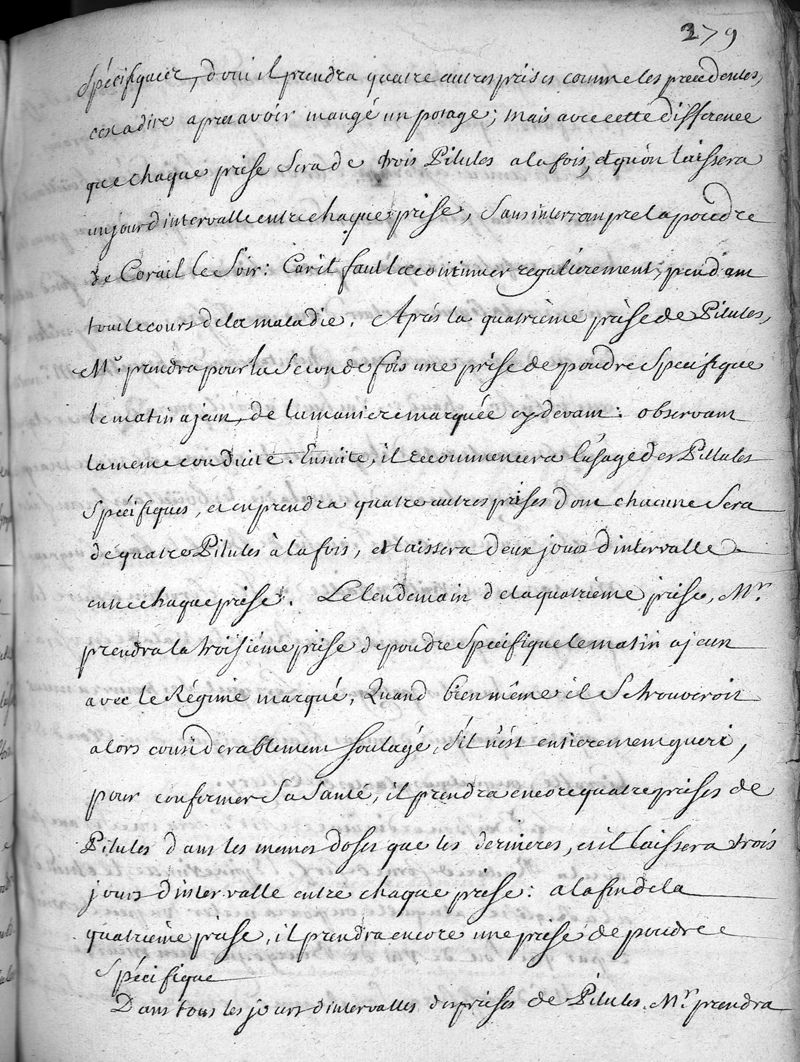 379
Spécifiques, dont il prendra quatre autres prises comme les precedentes,
cest a dire apres avoir mangé un potage; mais avec cette difference
que chaque prise sera de trois Pilules a la fois, et qu'on laissera
un jour d'intervalle entre chaque prise, sans interrompre la poudre
de Corail le Soir: Car il faut la continuer regulierement, pendant
tout le cours de la maladie. Après la quatrième prise de Pilules,
Mr. prendra pour la Seconde fois une prise de poudre Specifique
le matin a jeun, de la maniere marquée cy devant: observant
la même conduite. Ensuite, il Recommencera l'usage des Pillules
Spécifiques, et en prendra quatre autres prises dont chacune Sera
de quatre Pilules à la fois, et laissera deux jours d'intervalle
entre chaque prise. Le lendemain de la quatrième prise, Mr.
prendra la troisiéme prise de poudre Spécifique le matin a jeun
avec le Régime marqué, Quand bien même il Se trouveroit
alors considerablement Soulagé, S'il n'est entierement gueri,
pour confirmer Sa Santé, il prendra encore quatre prises de
Pilules dans les memes doses que les dernieres, et il laissera trois
jours d'intervalle entre chaque prise: a la fin de la
quatrieme prise, il prendra encore une prise de poudre
Spécifique
Dans tous les jours d'intervalles des prises de Pilules. Mr. prendra